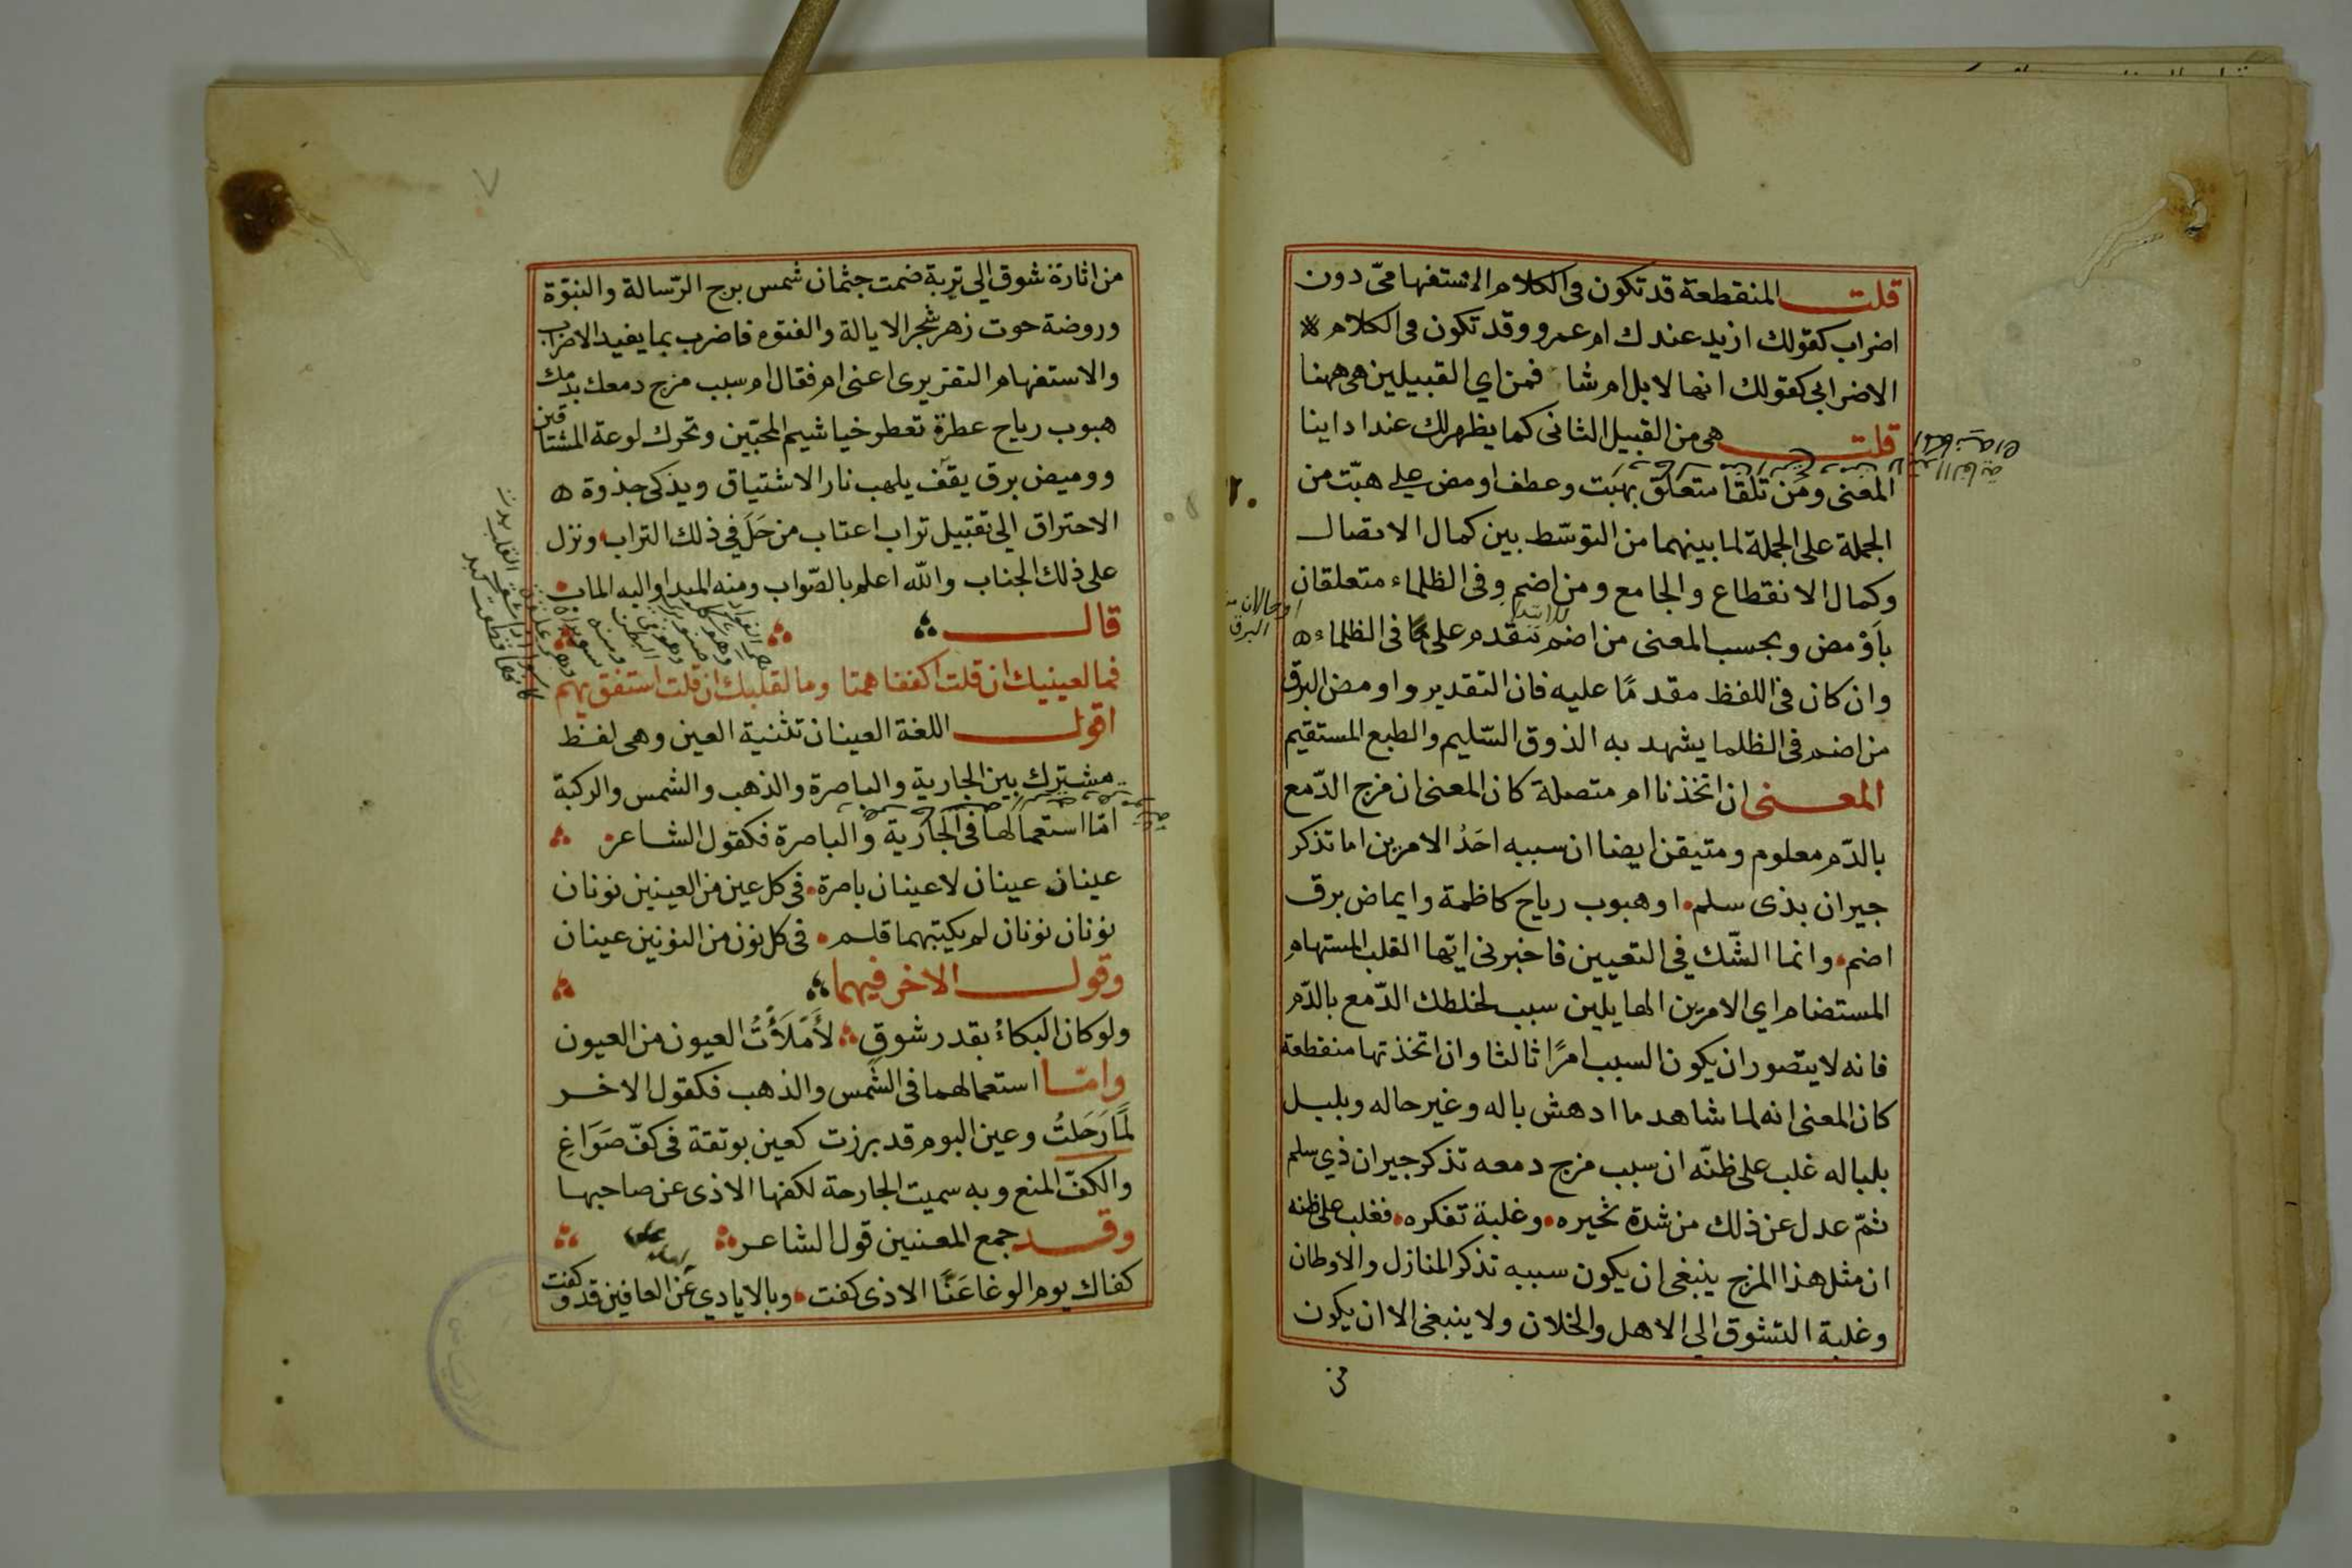 قلت المنقطعة قد تكون فى الكلام الاستفهامىّ دون
اضراب كقولك ازيد عندك ام عمرو وقد تكون فى الكلام
الاضرابى كقولك انها لابل ام شا فمن اي القبيلين هى ههنا
قلت هى من القبيل الثانى كما يظهر لك عند ادائنا
المعنى ومن تلقا متعلق بهبّت وعطف اومض على هبّت من
الجملة على الجملة لما بينهما من التوسّط بين كمال الاتصال
وكمال الانقطاع والجامع ومن اضم وفى الظلماء متعلقان
باَوْمض وبحسب المعنى من اضم تتقدم على فى الظلماء
وان كان فى اللفظ مقدمًا عليه فان التقدير واومض البرق
من اضم فى الظلما يشهد به الذوق السّليم والطبع المستقيم
المعنى ان اتخذنا ام متصلة كان المعنى ان مزج الدّمع
بالدّم معلوم ومتيقن ايضا ان سببه احَدُ الامرين اما تذكر
جيران بذى سلم او هبوب رياح كاظمة وايماض برق
اضم وانما الشّك فى التعيين فاخبرنى ايّها القلب المستهام
المستضام اي الامرين الهايلين سبب لخلطك الدّمع بالدّم
فانه لا يتصور ان يكون السبب امرًا ثالثا وان اتخذتها منقطعة
كان المعنى انه لما شاهد ما ادهش باله وغير حاله وبلبل
بلباله غلب على ظنّه ان سبب مزج دمعه تذكر جيران ذي سلم
ثمّ عدل عن ذلك من شدة تحيره وغلبة تفكره فغلب على ظنه
ان مثل هذا المزج ينبغى ان يكون سببه تذكر المنازل والاوطان
وغلبة التشوق الى الاهل والخلان ولا ينبغى الا ان يكون
من
من اثارة شوق الى تربة ضمت جثمان شمس برج الرّسالة والنبوّة
وروضة حوت زهر شجر الايالة والفتوه فاضرب بما يفيد الاضراب
والاستفهام التقريرى اعنى ام فقال ام سبب مزج دمعك بدمك
هبوب رياح عطرة تعطر خياشيم المحبّين وتحرك لوعة المشتاقين
ووميض برق يقق يلهب نار الاشتياق ويذكى جذوة
الاحتراق الى تقبيل تراب اعتاب من حَلَ فى ذلك التراب ونزل
على ذلك الجناب والله اعلم بالصّواب ومنه المبدا واليه الماب
قال
فما لعينيك ان قلت اكففا همتا وما لقلبك ان قلت استفق يهم
اقول اللغة العينان تثنية العين وهى لفظ
مشترك بين الجارية والباصرة والذهب والشمس والركبة
امّا استعمالها فى الجارية والباصرة فكقول الشاعر
عينان عينان لا عينان باصرة فى كل عين من العينين نونان
نونان نونان لم يكتبهما قلم فى كل نون من النونين عينان
وقول الاخر فيهما
ولو كان البكاءُ بقدر شوق لأَمْلَأْتُ العيون من العيون
وامّا استعمالهما فى الشّمس والذهب فكقول الاخر
لمَّا رَحَلتُ وعين اليوم قد برزت كعين بوتقة فى كفّ صَوَّاغِ
والكفّ المنع وبه سميت الجارحة لكفها الاذى عن صاحبها
وقد جمع المعنيين قول الشاعر
كفاك يوم الوغا عَنَّا الاذى كفت وبالايادي عَن العافين قد وكفت